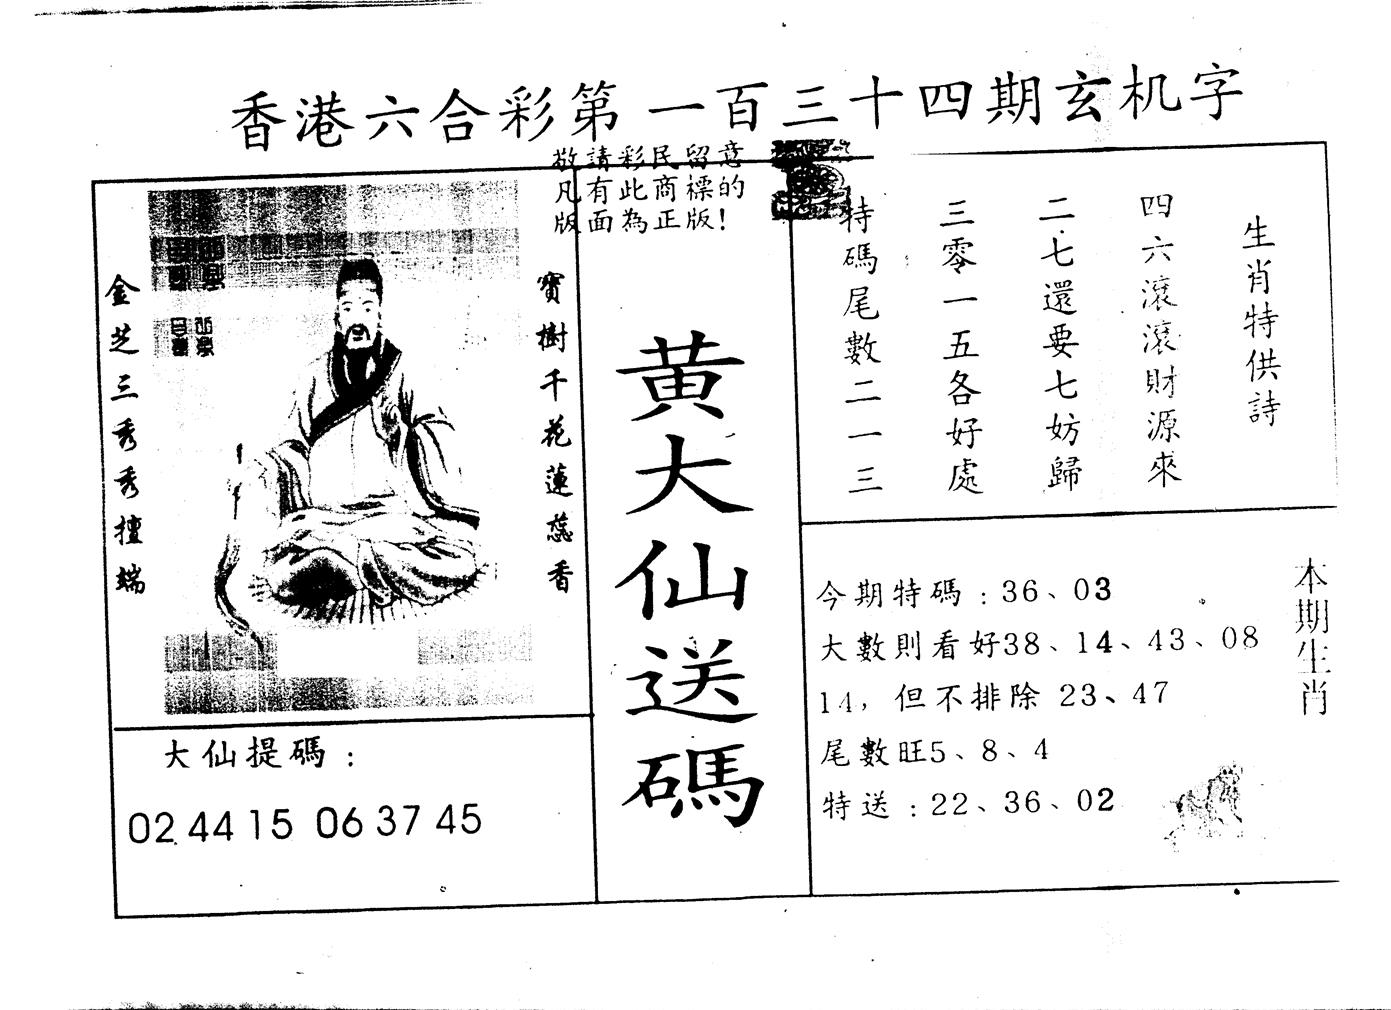 香港六合彩第一百三十四期玄机字
敬請彩民留意
凡有此商標的
版面為正版!
寶樹千花蓮蕊香
金芝三秀秀擅端
大仙提碼:
02 44 15 06 37 45
黄大仙送碼
生肖特供詩
四六滾滾財源來
二七還要七妨歸
三零一五各好處
特碼尾數二一三
本期生肖
今期特碼:36、03
大數則看好38、14、43、08
14,但不排除 23、47
尾數旺5、8、4
特送:22、36、02